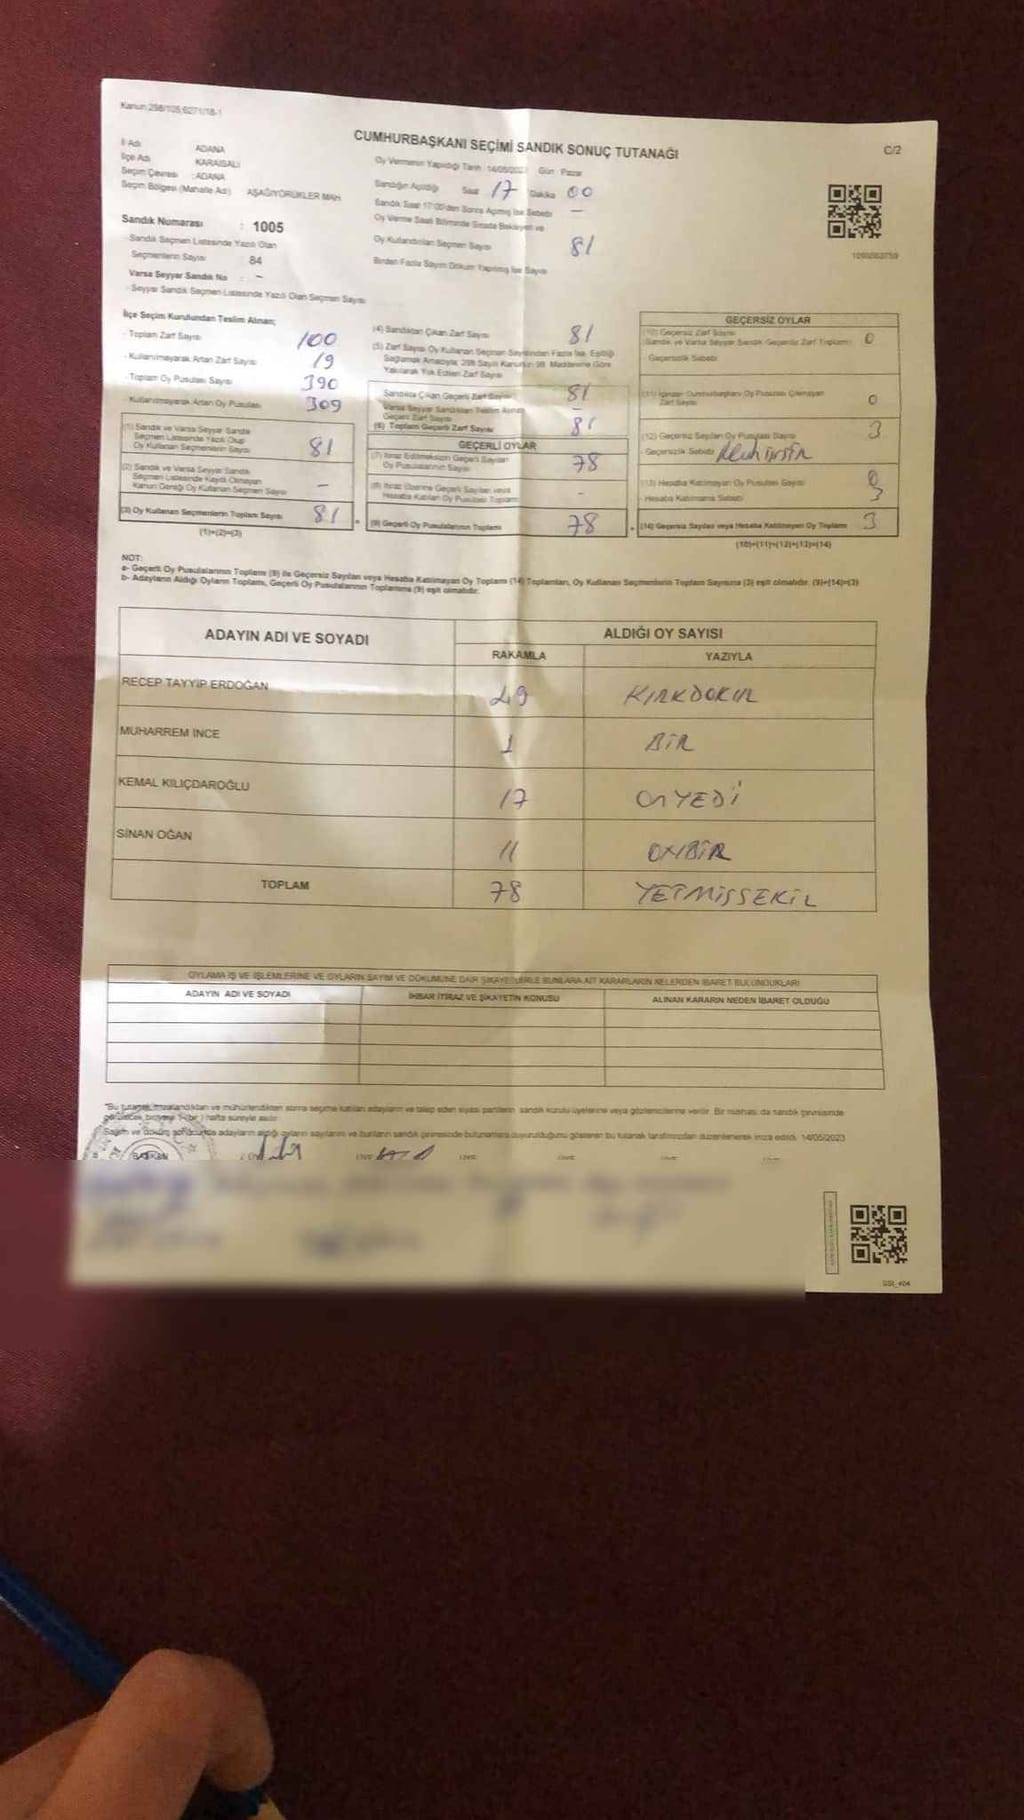 Kanun:298/105;6271/18-1
CUMHURBAŞKANI SEÇİMİ SANDIK SONUÇ TUTANAĞI
C/2
İl Adı ADANA
İlçe Adı KARAİSALI
Seçim Çevresi :ADANA
Seçim Bölgesi (Mahalle Adı) AŞAĞIYÖRÜKLER MAH.
Sandık Numarası : 1005
- Sandık Seçmen Listesinde Yazılı Olan
Seçmenlerin Sayısı 84
Varsa Seyyar Sandık No : -
- Seyyar Sandık Seçmen Listesinde Yazılı Olan Seçmen Sayısı
Oy Vermenin Yapıldığı Tarih :14/05/2023 Gün :Pazar
Sandığın Açıldığı Saat 17 Dakika 00
Sandık Saat 17:00'den Sonra Açılmış İse Sebebi -
Oy Verme Saati Bitiminde Sırada Bekleyen ve
Oy Kullandırılan Seçmen Sayısı 81
Birden Fazla Sayım Döküm Yapılmış İse Sayısı
İlçe Seçim Kurulundan Teslim Alınan;
- Toplam Zarf Sayısı 100
- Kullanılmayarak Artan Zarf Sayısı 19
- Toplam Oy Pusulası Sayısı 390
- Kullanılmayarak Artan Oy Pusulası 309
(1) Sandık ve Varsa Seyyar Sandık
Seçmen Listesinde Yazılı Olup
Oy Kullanan Seçmenlerin Sayısı 81
(2) Sandık ve Varsa Seyyar Sandık
Seçmen Listesinde Kayıtlı Olmayan
Kanun Gereği Oy Kullanan Seçmen Sayısı -
(3) Oy Kullanan Seçmenlerin Toplam Sayısı 81
(1)+(2)=(3)
(4) Sandıktan Çıkan Zarf Sayısı 81
(5) Zarf Sayısı Oy Kullanan Seçmen Sayısından Fazla İse, Eşitliği
Sağlamak Amacıyla, 298 Sayılı Kanunun 98. Maddesine Göre
Yakılarak Yok Edilen Zarf Sayısı
Sandıkta Çıkan Geçerli Zarf Sayısı 81
Varsa Seyyar Sandıktan Teslim Alınan
Geçerli Zarf Sayısı -
(6) Toplam Geçerli Zarf Sayısı 81
GEÇERLİ OYLAR
(7) İtiraz Edilmeksizin Geçerli Sayılan
Oy Pusulalarının Sayısı 78
(8) İtiraz Üzerine Geçerli Sayılan veya
Hesaba Katılan Oy Pusulası Toplamı -
(9) Geçerli Oy Pusulalarının Toplamı 78
GEÇERSİZ OYLAR
(10) Geçersiz Zarf Sayısı
(Sandık ve Varsa Seyyar Sandık Geçersiz Zarf Toplamı) 0
- Geçersizlik Sebebi
(11) İçinden Cumhurbaşkanı Oy Pusulası Çıkmayan
Zarf Sayısı 0
(12) Geçersiz Sayılan Oy Pusulası Sayısı 3
- Geçersizlik Sebebi
(13) Hesaba Katılmayan Oy Pusulası Sayısı 0
- Hesaba Katılmama Sebebi 3
(14) Geçersiz Sayılan veya Hesaba Katılmayan Oy Toplamı 3
(10)+(11)+(12)+(13)=(14)
NOT:
a- Geçerli Oy Pusulalarının Toplamı (9) ile Geçersiz Sayılan veya Hesaba Katılmayan Oy Toplamı (14) Toplamları, Oy Kullanan Seçmenlerin Toplam Sayısına (3) eşit olmalıdır. (9)+(14)=(3)
b- Adayların Aldığı Oyların Toplamı, Geçerli Oy Pusulalarının Toplamına (9) eşit olmalıdır.
ADAYIN ADI VE SOYADI ALDIĞI OY SAYISI
RAKAMLA YAZIYLA
RECEP TAYYİP ERDOĞAN 49 KIRKDOKUZ
MUHARREM İNCE 1 BİR
KEMAL KILIÇDAROĞLU 17 ONYEDİ
SİNAN OĞAN 11 ONBİR
TOPLAM 78 YETMİŞSEKİZ
OYLAMA İŞ VE İŞLEMLERİNE VE OYLARIN SAYIM VE DÖKÜMÜNE DAİR ŞİKAYETLERLE BUNLARA AİT KARARLARIN NELERDEN İBARET BULUNDUKLARI
ADAYIN ADI VE SOYADI İHBAR İTİRAZ VE ŞİKAYETİN KONUSU ALINAN KARARIN NEDEN İBARET OLDUĞU
"Bu tutanak, imzalandıktan ve mühürlendikten sonra seçime katılan adayların ve talep eden siyasi partilerin sandık kurulu üyelerine veya gözlemcilerine verilir. Bir nüshası da sandık çevresinde
görülecek bir yere 1 (bir) hafta süreyle asılır.
Sayım ve döküm sonucunda adayların aldığı oyların sayılarını ve bunların sandık çevresinde bulunanlara duyurulduğunu gösteren bu tutanak tarafımızdan düzenlenerek imza edildi. 14/05/2023
BAŞKAN ÜYE ÜYE ÜYE ÜYE ÜYE
SSI_404